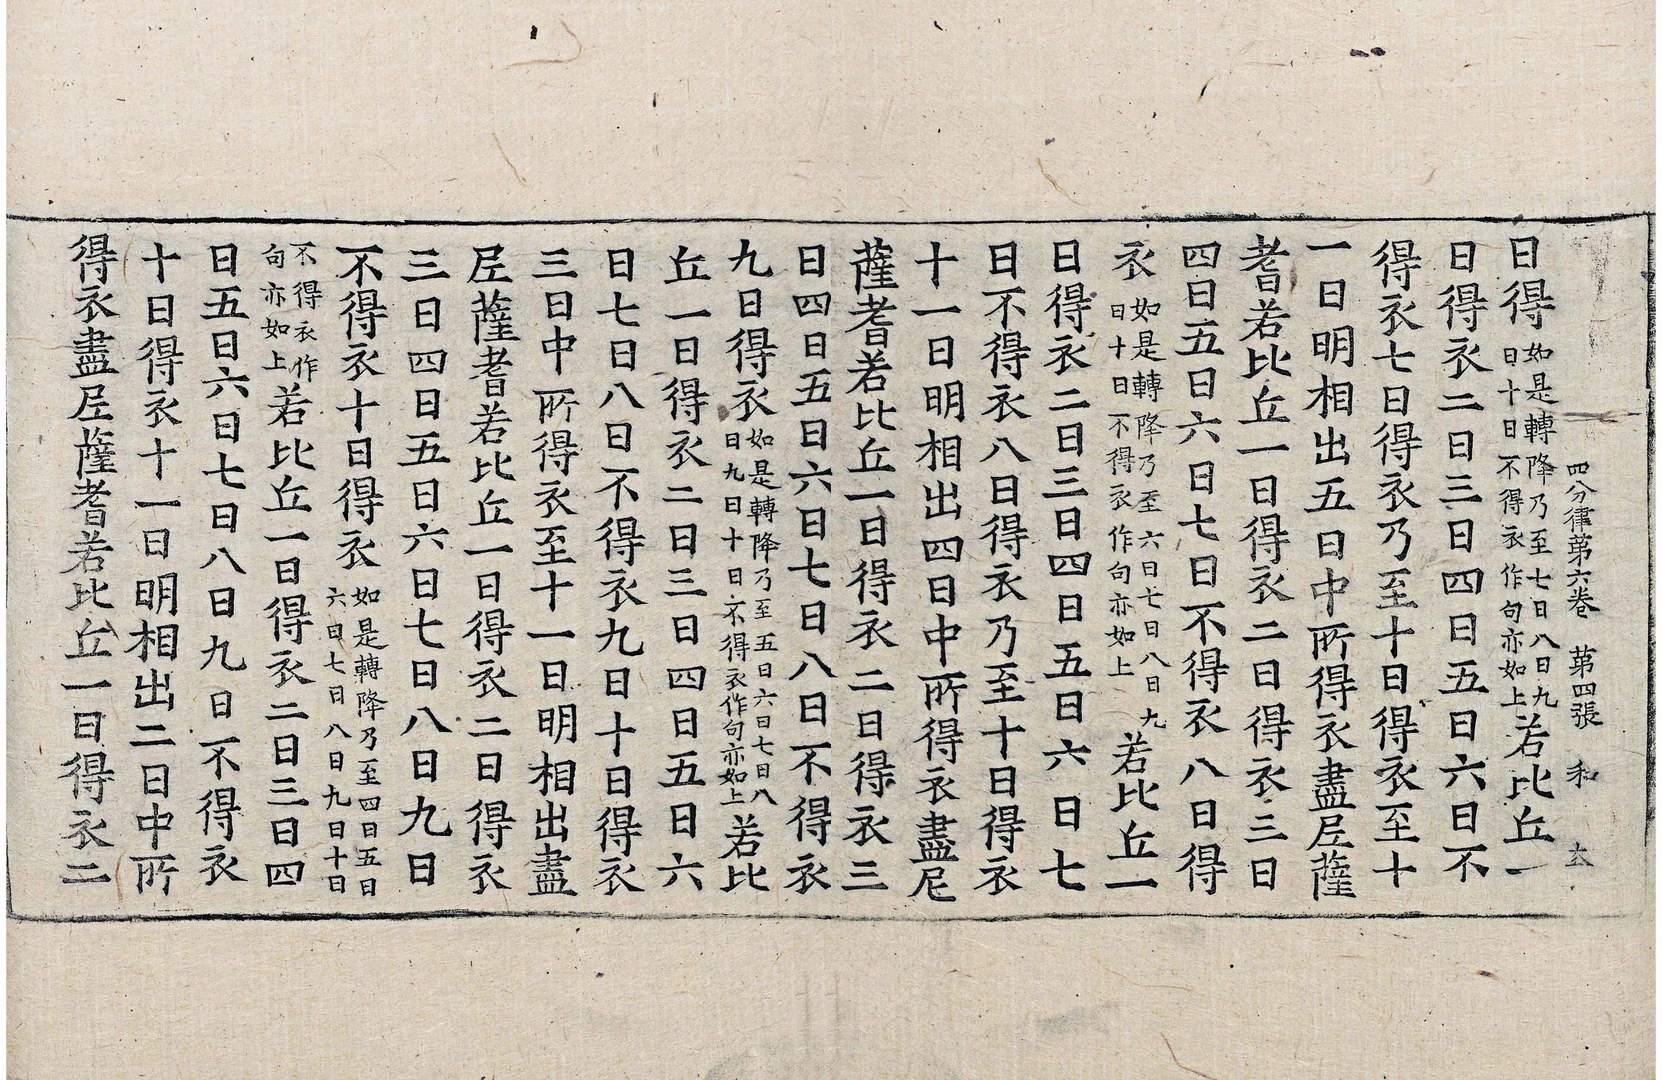 四分律第六卷 第四張 和
日得如是轉降乃至七日八日九日十日不得衣作句亦如上若比丘一
日得衣二日三日四日五日六日不
得衣七日得衣乃至十日得衣至十
一日明相出五日中所得衣盡尼薩
耆若比丘一日得衣二日得衣三日
四日五日六日七日不得衣八日得
衣如是轉降乃至六日七日八日九日十日不得衣作句亦如上若比丘一
日得衣二日三日四日五日六日七
日不得衣八日得衣乃至十日得衣
十一日明相出四日中所得衣盡尼
薩耆若比丘一日得衣二日得衣三
日四日五日六日七日八日不得衣
九日得衣如是轉降乃至五日六日七日八日九日十日不得衣作句亦如上若比
丘一日得衣二日三日四日五日六
日七日八日不得衣九日十日得衣
三日中所得衣至十一日明相出盡
尼薩耆若比丘一日得衣二日得衣
三日四日五日六日七日八日九日
不得衣十日得衣如是轉降乃至四日五日六日七日八日九日十日
不得衣作句亦如上若比丘一日得衣二日三日四
日五日六日七日八日九日不得衣
十日得衣十一日明相出二日中所
得衣盡尼薩耆若比丘一日得衣二